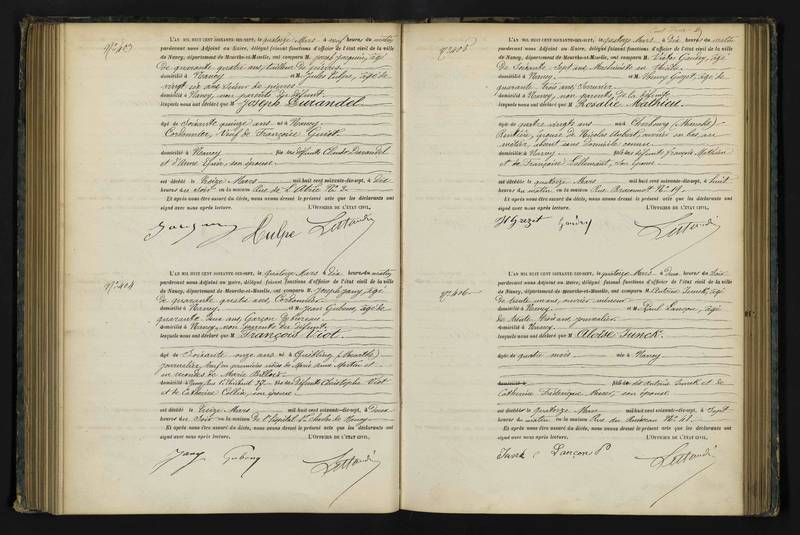 N° 403
L'AN MIL HUIT CENT SOIXANTE-DIX-SEPT, le quatorze Mars à neuf heures du matin
pardevant nous Adjoint au Maire, délégué faisant fonctions d'officier de l'état civil de la ville
de Nancy, département de Meurthe-et-Moselle, ont comparu M. Joseph Jacquin, âgé
de quarante quatre ans, tailleur de pierres
domicilié à Nancy et M. Jules Hulpe, âgé de
vingt six ans, tailleur de pierres
domicilié à Nancy, non parents du défunt
lesquels nous ont déclaré que M. Joseph Durandel
âgé de soixante quinze ans né à Nancy
Cordonnier, veuf de Françoise
domicilié à Nancy fils des défunts Claude Durandel
et d'Anne son épouse
est décédé le treize Mars mil huit cent soixante-dix-sept, à Dix
heures du soir en la maison Rue de N° 3
Et après nous être assuré du décès, nous avons dressé le présent acte que les déclarants ont
signé avec nous après lecture. L'OFFICIER DE L'ÉTAT CIVIL,
Hulpe
N° 404
L'AN MIL HUIT CENT SOIXANTE-DIX-SEPT, le quatorze Mars à Dix heures du matin
pardevant nous Adjoint au Maire, délégué faisant fonctions d'officier de l'état civil de la ville
de Nancy, département de Meurthe-et-Moselle, ont comparu M. Joseph Jany, âgé
de quarante quatre ans, Cordonnier
domicilié à Nancy et M. Jean âgé de
quarante ans Garçon
domicilié à Nancy, non parents du défunt
lesquels nous ont déclaré que M. François Viot
âgé de Soixante onze ans né à (Meurthe)
journalier, veuf en premières noces de Marie Anne Martin et
en secondes de Marie
domicilié à Nancy fils des défunts Christophe Viot
et de Catherine son épouse
est décédé le treize Mars mil huit cent soixante-dix-sept, à
heures du soir en la maison de l'hôpital St Charles de Nancy
Et après nous être assuré du décès, nous avons dressé le présent acte que les déclarants ont
signé avec nous après lecture. L'OFFICIER DE L'ÉTAT CIVIL,
Jany
N° 405
L'AN MIL HUIT CENT SOIXANTE-DIX-SEPT, le quatorze Mars à Dix heures du matin
pardevant nous Adjoint au Maire, délégué faisant fonctions d'officier de l'état civil de la ville
de Nancy, département de Meurthe-et-Moselle, ont comparu M. Victor Gaudry, âgé
de Soixante sept ans, Machiniste au théâtre
domicilié à Nancy et M. âgé de
quarante trois ans, Serrurier
domicilié à Nancy, non parents de la défunte
lesquels nous ont déclaré que M. Rosalie Mathieu
âgée de quatre vingts ans née à Cherbourg (Manche)
Rentière, épouse de Nicolas ouvrier en bas au
métier, absent sans domicile connu
domicilié à Nancy fille des défunts François Mathieu
et de Françoise Lallemant, sa femme
est décédé le quatorze Mars mil huit cent soixante-dix-sept, à huit
heures du matin en la maison Rue N° 19
Et après nous être assuré du décès, nous avons dressé le présent acte que les déclarants ont
signé avec nous après lecture. L'OFFICIER DE L'ÉTAT CIVIL,
Gaudry
N° 406
L'AN MIL HUIT CENT SOIXANTE-DIX-SEPT, le quatorze Mars à Deux heures du soir
pardevant nous Adjoint au Maire, délégué faisant fonctions d'officier de l'état civil de la ville
de Nancy, département de Meurthe-et-Moselle, ont comparu M. Antoine Junck, âgé
de trente un ans, ouvrier mineur
domicilié à Nancy et M. Paul Lançon, âgé
de trente trois ans, journalier
domicilié à Nancy
lesquels nous ont déclaré que M. Aloïse Junck
âgé de quatre mois né à Nancy
domicilié à fils de dit Antoine Junck et de
Catherine Frédérique son épouse
est décédé le quatorze Mars mil huit cent soixante-dix-sept, à sept
heures du matin en la maison Rue du Ruisseau N° 48
Et après nous être assuré du décès, nous avons dressé le présent acte que les déclarants ont
signé avec nous après lecture. L'OFFICIER DE L'ÉTAT CIVIL,
Junk Lançon P